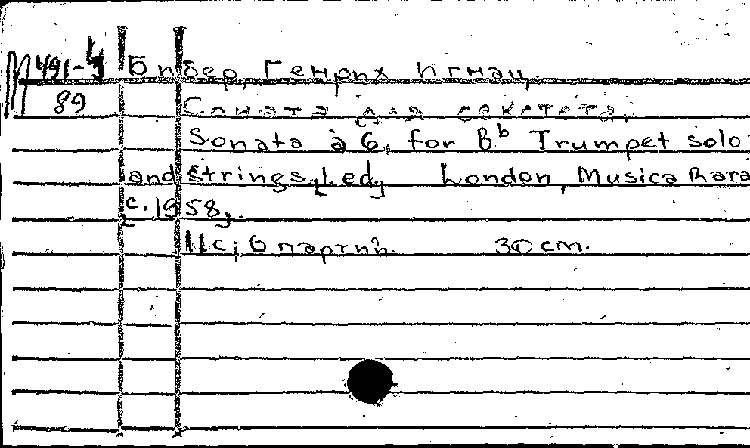 М 491-4 Бибер, Генрих Игнац.
89 Соната для секстета.
Sonata à 6, for Bb Trumpet solo
and strings, [ed] London, Musica Rara
c. 1958].
11 с; 6 партий. 30 cm.